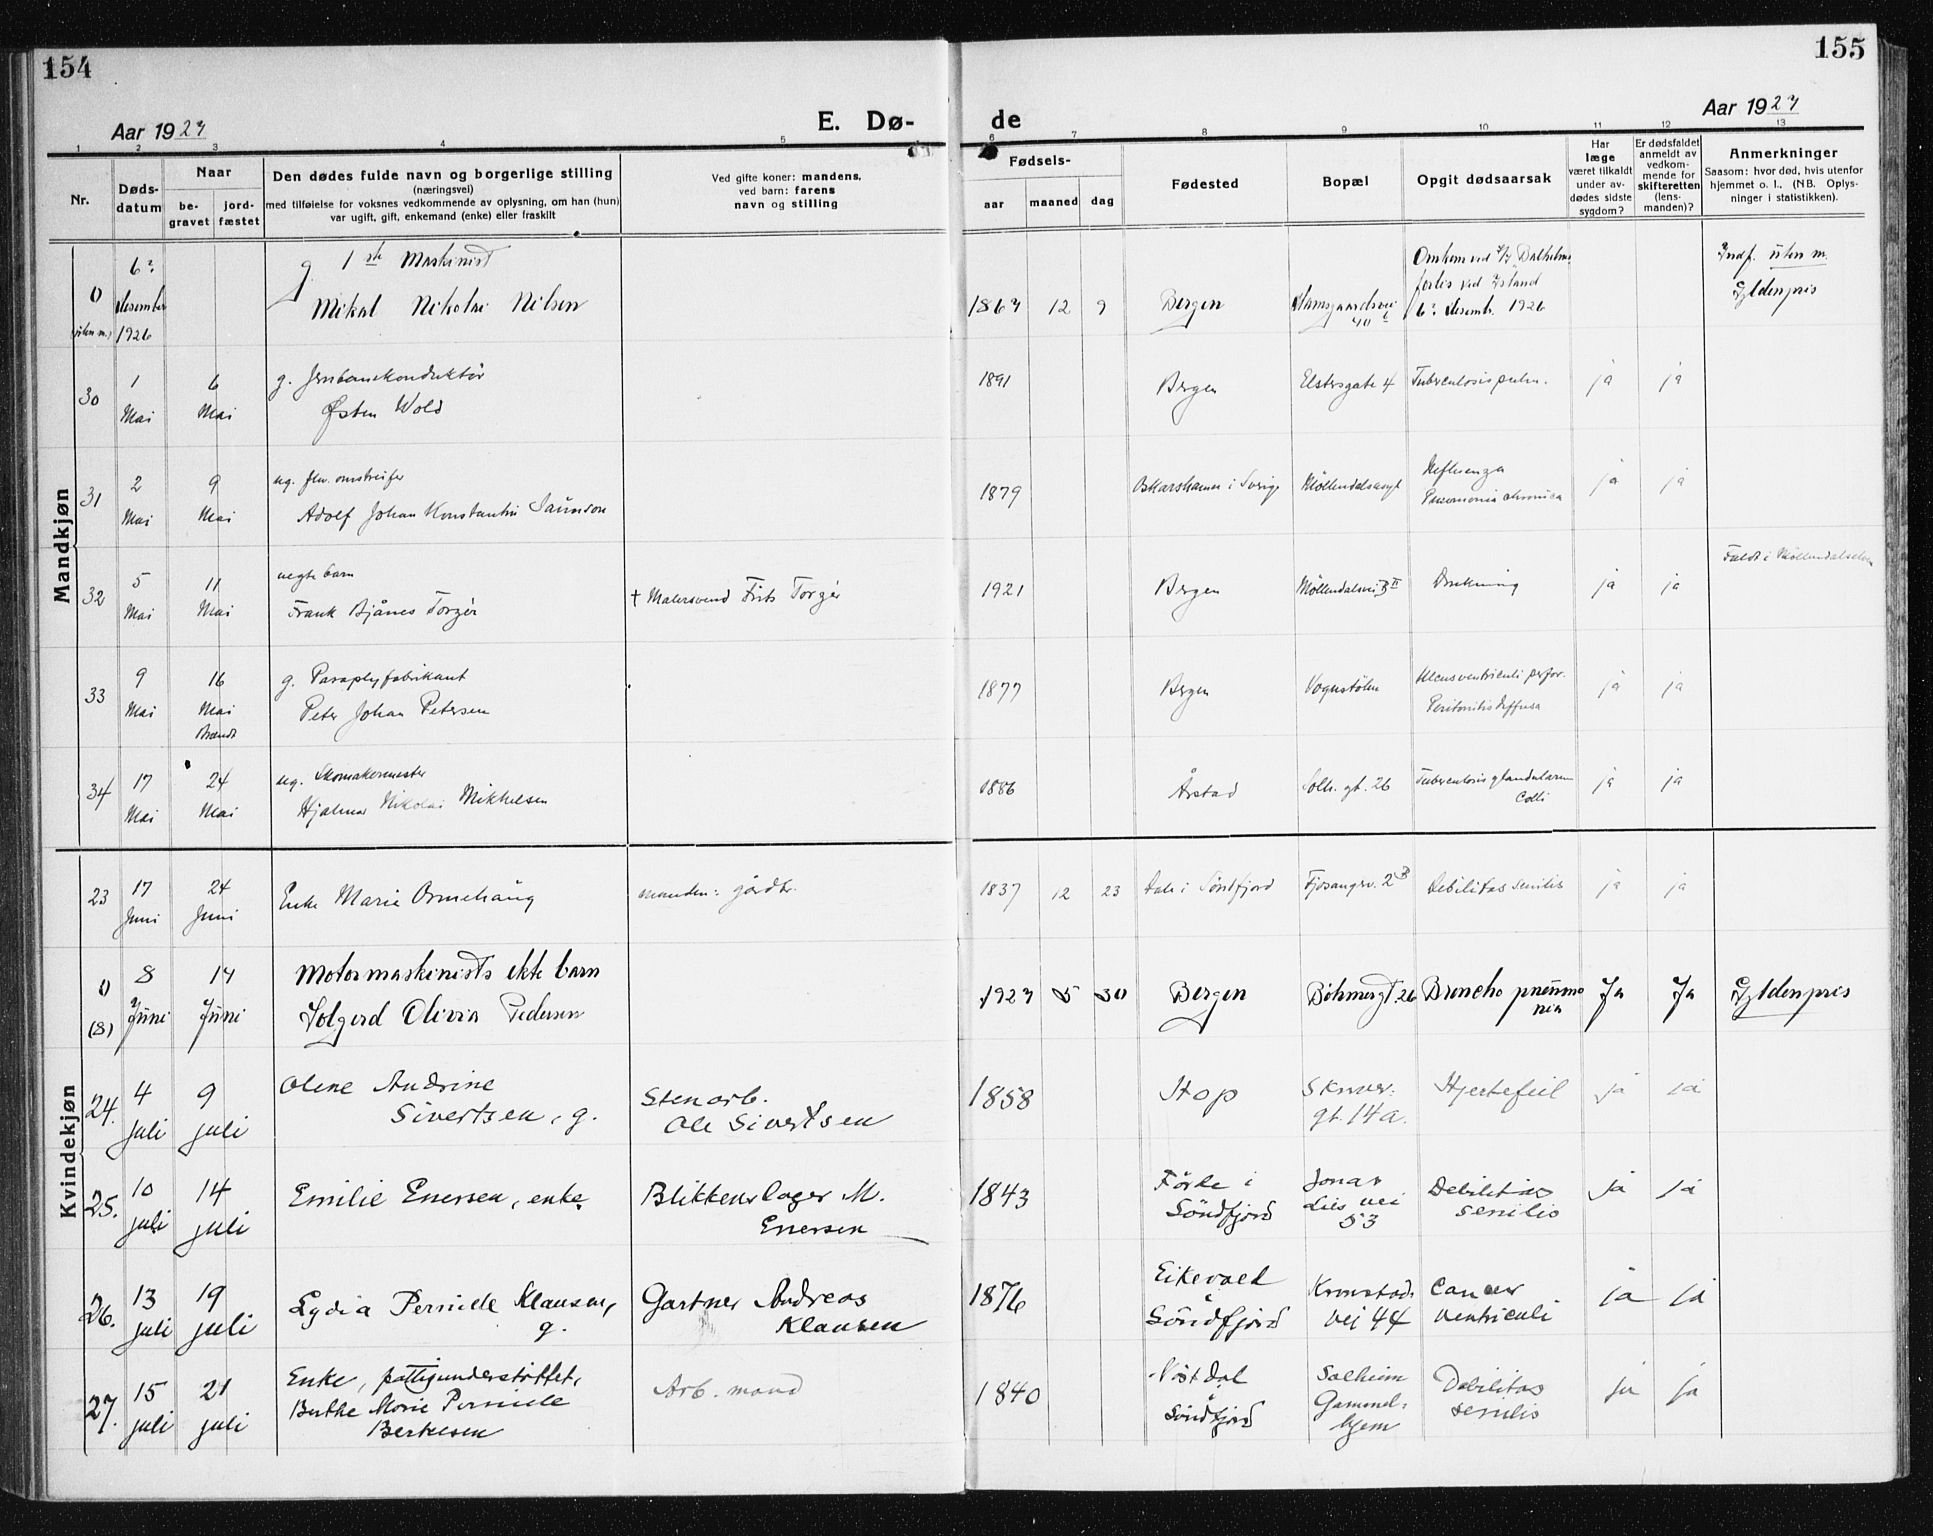 154
155
Aar 1927
E. Dø-
de
Aar 1927
1 2 3 4 5 6 7 8 9 10 11 12 13
Nr.
Døds-
datum
Naar
be-
gravet
jord-
fæstet
Den dødes fulde navn og borgerlige stilling
(næringsvei)
med tilføielse for voksnes vedkommende av oplysning, om han (hun)
var ugift, gift, enkemand (enke) eller fraskilt
Ved gifte koner: mandens,
ved barn: farens
navn og stilling
Fødsels-
aar
maaned
dag
Fødested
Bopæl
Opgit dødsaarsak
Har
læge
været tilkaldt
under av-
dødes sidste
sygdom?
Er dødsfaldet
anmeldt av
vedkom-
mende for
skifteretten
(lens-
manden)?
Anmerkninger
Saasom: hvor død, hvis utenfor
hjemmet o. l., (NB. Oplys-
ninger i statistikken).
Mandkjøn
0
(uten m.)
6?
desember
1926
g. 1ste Maskinist
Mikal Nikolai Nilsen
1867 12 9
Bergen
Damsgaardsvei
40
Omkom ved
forlis ved Island
6? desemb. 1926
Indf. uten m.
Gyldenpris
30
1
Mai
6
Mai
g. Jernbanekonduktør
Østen Wold
1891
Bergen
Elstersgate 4
Tuberculosis pulm.
ja
ja
31
2
Mai
9
Mai
ug. omstreifer
Adolf Johan Konstantin
1879
Oskarshamn i Sverige
Influenza
Pneumonia chronica
ja
ja
32
5
Mai
11
Mai
uegte barn
Frank Bjånes Torgér
† Malersvend Frits Torgér
1921
Bergen
Møllendalsvei
Drukning
ja
ja
Faldt i Møllendalselven
33
9
Mai
16
Mai
Brændt
g. Paraplyfabrikant
Peter Johan Petersen
1877
Bergen
Vognstølen
Ulcus ventriculi perfor.
Peritonitis diffusa
ja
ja
34
17
Mai
24
Mai
ug. Skomakermester
Hjalmar Nikolai Mikkelsen
1886
Årstad
Solh. gt. 26
Tuberculosis glandularum
Colli
ja
ja
Kvindekjøn
23
17
Juni
24
Juni
Enke Marie Ormehaug
manden: gårdbr.
1837 12 23
Dale i Søndfjord
Fjosangerv. 2B
Debilitas senilis
ja
ja
0
(8)
8
Juni
14
Juni
Motormaskinists ekte barn
Solgerd Olivia Pedersen
1927 5 30
Bergen
Böhmergt. 26
Broncho pneumo
nia
Ja
Ja
Gyldenpris
24.
4
juli
9
juli
Olene Andrine
Sivertsen, g.
Stenarb.
Ole Sivertsen
1858
Hop
Skruer-
gt. 14a.
Hjertefeil
ja
ja
25.
10
juli
14
juli
Emilie Enersen, enke
Blikkenslager M.
Enersen
1843
Förde i
Söndfjord
Jonas
Lies vei
53
Debilitas
senilis
ja
ja
26.
13
juli
19
juli
Lydia Pernille Klausen,
g.
Gartner Andreas
Klausen
1876
Eikevold
Söndfjord
Kronstad-
vei 44
Cancer
ventriculi
ja
ja
27.
15
juli
21
juli
Enke, fattigunderstöttet,
Berthe Marie Pernille
Bertelsen
Arb. mand
1840
Söndfjord
Solheim
Gammel-
hjem
Debilitas
senilis
ja
ja